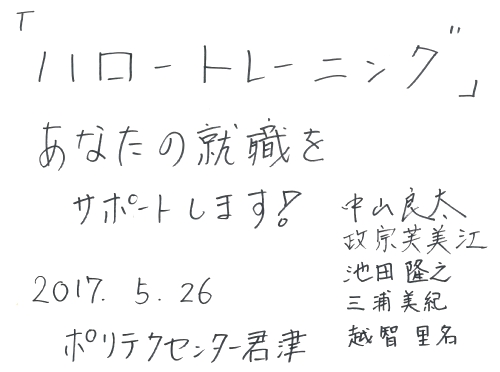 「ハロートレーニング」
あなたの就職を
サポートします!
中山良太
政宗芙美江
池田隆之
三浦美紀
越智里名
2017. 5. 26
ポリテクセンター君津